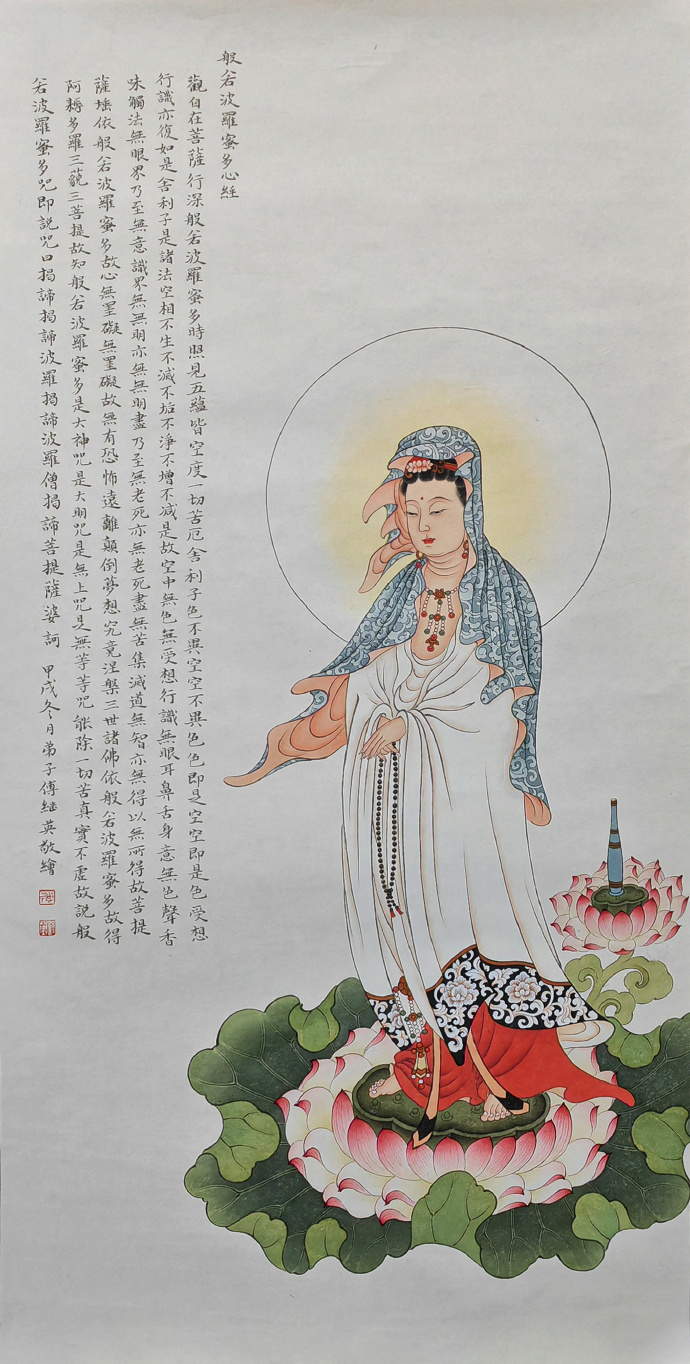 般若波羅蜜多心經
觀自在菩薩行深般若波羅蜜多時照見五蘊皆空度一切苦厄舍利子色不異空空不異色色即是空空即是色受想
行識亦復如是舍利子是諸法空相不生不滅不垢不淨不增不減是故空中無色無受想行識無眼耳鼻舌身意無色聲香
味觸法無眼界乃至無意識界無無明亦無無明盡乃至無老死亦無老死盡無苦集滅道無智亦無得以無所得故菩提
薩埵依般若波羅蜜多故心無罣礙無罣礙故無有恐怖遠離顛倒夢想究竟涅槃三世諸佛依般若波羅蜜多故得
阿耨多羅三藐三菩提故知般若波羅蜜多是大神咒是大明咒是無上咒是無等等咒能除一切苦真實不虛故說般
若波羅蜜多咒即說咒曰揭諦揭諦波羅揭諦波羅僧揭諦菩提薩婆訶 甲戌冬月弟子傅継英敬繪